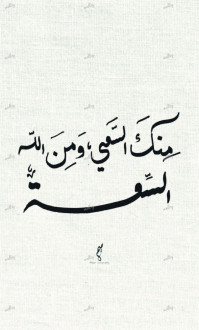 مِنكَ السَّعي، وَمِنَ اللّه
السِّعَةُ